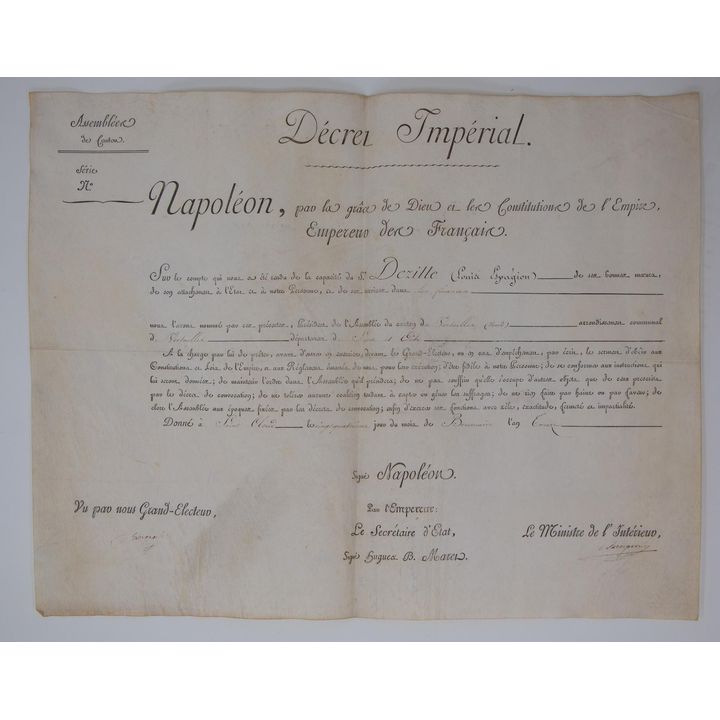 Assemblées
de Canton.
Série
N.º
Décret Impérial.
Napoléon, par la grâce de Dieu et les Constitutions de l'Empire,
Empereur des Français.
Sur le compte qui nous a été rendu de la capacité du S.r Dezille (Louis Hyagion) de ses bonnes mœurs,
de son attachement à l'Etat et à notre Personne, et de ses services dans les finances
nous l'avons nommé par ces présentes, Président de l'Assemblée du canton de Versailles (Nord) arrondissement communal
d Versailles département de Seine et Oise
A la charge par lui de prêter, avant d'entrer en exercice, devant les Grand-Electeur, ou en cas d'empêchement, par écrit, le serment d'obéir aux
Constitutions et Lois de l'Empire, et aux Réglemens émanés de nous, pour leur exécution; d'être fidèle à notre Personne; de se conformer aux instructions qui
lui seront données; de maintenir l'ordre dans l'Assemblée qu'il présidera; de ne pas souffrir qu'elle s'occupe d'autres objets que de ceux prescrits
par le décret de convocation; de ne tolérer aucune coalition tendant à capter ou gêner les suffrages; de ne rien faire par haine ou par faveur; de
clore l'Assemblée aux époques fixées par les décrets de convocation; enfin d'exercer ses fonctions avec zèle, exactitude, fermeté et impartialité.
Donné à Saint Cloud le vingt-quatrième jour du mois de Brumaire l'an Onze
Signé Napoléon.
Vu par nous Grand-Electeur,
Par l'Empereur:
Le Secrétaire d'Etat,
Le Ministre de l'Intérieur,
Signé Hugues B. Maret.